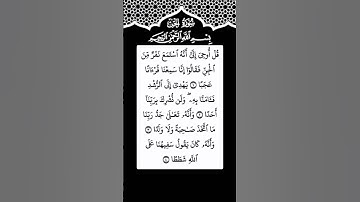 سُورَةُ الْجِنِّ
بِسْمِ اللَّهِ الرَّحْمَٰنِ الرَّحِيمِ
قُلْ أُوحِيَ إِلَيَّ أَنَّهُ ٱسْتَمَعَ نَفَرٌ مِّنَ
ٱلْجِنِّ فَقَالُوٓا۟ إِنَّا سَمِعْنَا قُرْءَانًا
عَجَبًا ١ يَهْدِىٓ إِلَى ٱلرُّشْدِ
فَـَٔامَنَّا بِهِۦ ۖ وَلَن نُّشْرِكَ بِرَبِّنَآ
أَحَدًا ٢ وَأَنَّهُۥ تَعَـٰلَىٰ جَدُّ رَبِّنَا
مَا ٱتَّخَذَ صَـٰحِبَةً وَلَا وَلَدًا ٣
وَأَنَّهُۥ كَانَ يَقُولُ سَفِيهُنَا عَلَى
ٱللَّهِ شَطَطًا ٤